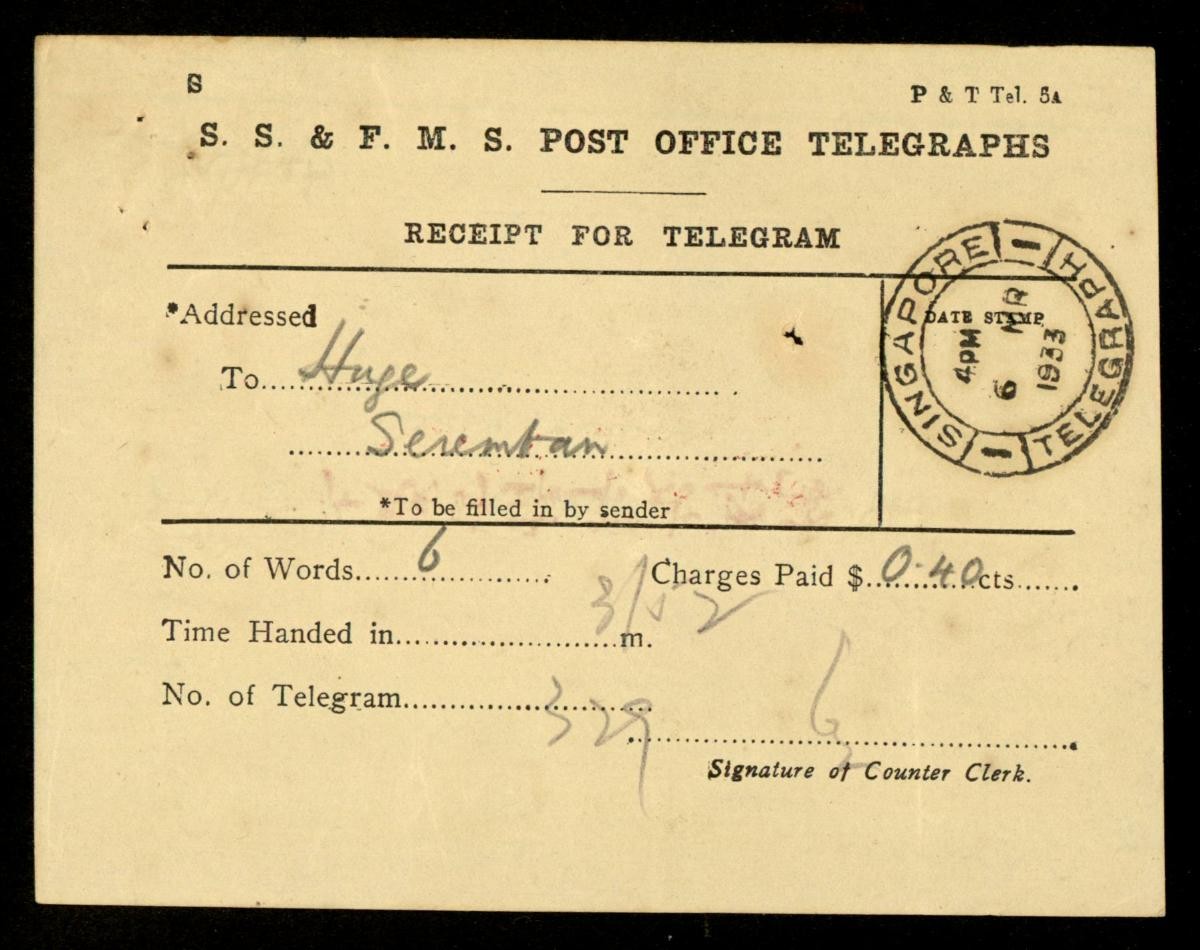 S
P & T Tel. 5A
S. S. & F. M. S. POST OFFICE TELEGRAPHS
RECEIPT FOR TELEGRAM
*Addressed
To Huge
Seremban
*To be filled in by sender
SINGAPORE — TELEGRAPH —
DATE STAMP
4PM
6 MR
1933
No. of Words 6 Charges Paid $ 0.40 cts
Time Handed in 3/52 m.
No. of Telegram 329
Signature of Counter Clerk.